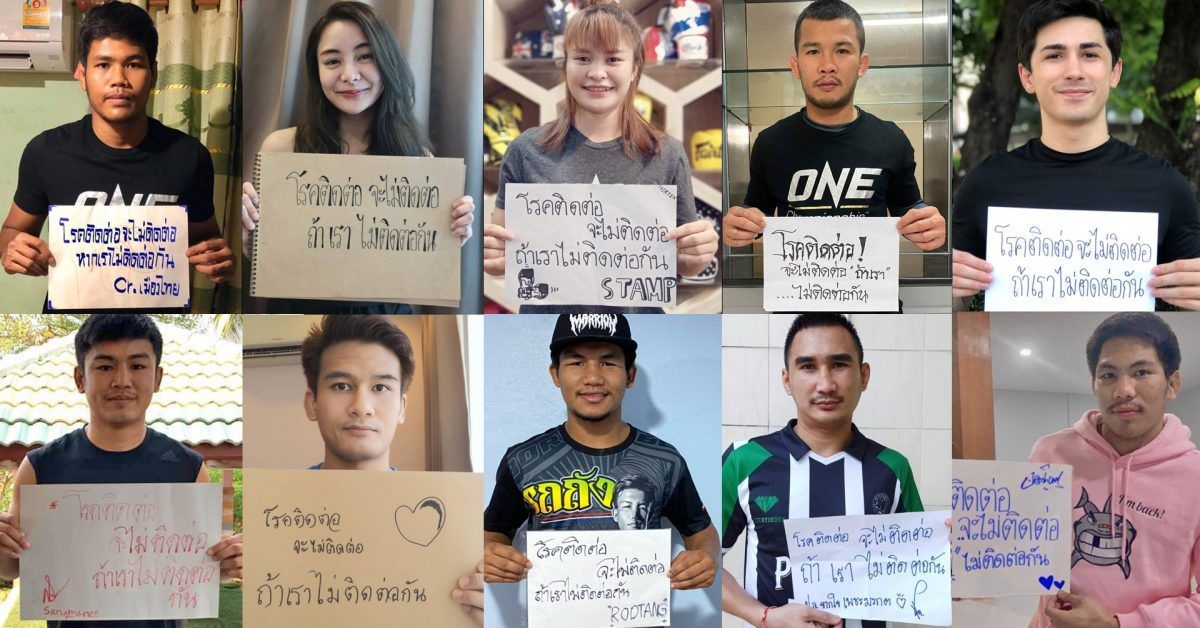 ONE
โรคติดต่อ จะไม่ติดต่อ
หากเราไม่ติดต่อกัน
Cr. เมืองไทย
โรคติดต่อ จะไม่ติดต่อ
ถ้าเรา ไม่ติดต่อกัน
โรคติดต่อ
จะไม่ติดต่อ
ถ้าเราไม่ติดต่อกัน
STAMP
ONE
Championship
โรคติดต่อ!
จะไม่ติดต่อ "ถ้าเรา"
....ไม่ติดต่อกัน
โรคติดต่อ จะไม่ติดต่อ
ถ้าเราไม่ติดต่อกัน
โรคติดต่อ
จะไม่ติดต่อ
ถ้าเราไม่ติดต่อ
กัน
Sangmanee
โรคติดต่อ
จะไม่ติดต่อ
ถ้าเราไม่ติดต่อกัน
MARRION
รถถัง
โรคติดต่อ
จะไม่ติดต่อ
ถ้าเราไม่ติดต่อกัน
RODTANG
โรคติดต่อ จะไม่ติดต่อ
ถ้า เรา ไม่ติดต่อกัน
เพชรมรกต
I'm back!
ติดต่อ
จะไม่ติดต่อ
"ไม่ติดต่อกัน